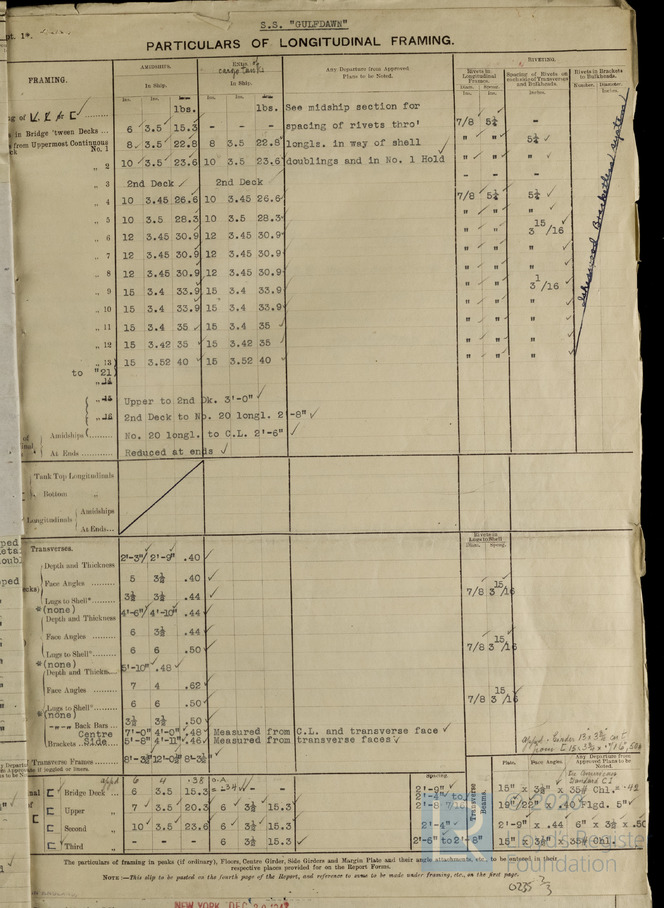 S.S. "GULFDAWN"
PARTICULARS OF LONGITUDINAL FRAMING.
FRAMING.
AMIDSHIPS.
In Ship.
ENDS of cargo tanks
In Ship.
Any Departure from Approved Plans to be Noted.
RIVETING.
Rivets in Longitudinal Frames.
Spacing of Rivets on Transverses and Bulkheads.
Rivets in Brackets to Bulkheads.
Ins. Ins. lbs. Ins. Ins. lbs.
Diam. Spcng. Number. Diameter.
See midship section for
in Bridge 'tween Decks ... 6 3.5 15.3 - - - spacing of rivets thro' 7/8 5¼ -
from Uppermost Continuous
No. 1 8 3.5 22.8 8 3.5 22.8 longls. in way of shell " " 5¼
" 2 10 3.5 23.6 10 3.5 23.6 doublings and in No. 1 Hold " " "
" 3 2nd Deck 2nd Deck - - -
" 4 10 3.45 26.6 10 3.45 26.6 7/8 5¼ 5¼
" 5 10 3.5 28.3 10 3.5 28.3 " " "
" 6 12 3.45 30.9 12 3.45 30.9 " " 3 15/16
" 7 12 3.45 30.9 12 3.45 30.9 " " "
" 8 12 3.45 30.9 12 3.45 30.9 " " "
" 9 15 3.4 33.9 15 3.4 33.9 " " 3 1/16
" 10 15 3.4 33.9 15 3.4 33.9 " " "
" 11 15 3.4 35 15 3.4 35 " " "
" 12 15 3.42 35 15 3.42 35 " " "
" 13 15 3.52 40 15 3.52 40 " " "
to "21
" 14
" 15 Upper to 2nd Dk. 3'-0"
" 16 2nd Deck to No. 20 longl. 2'-8"
Amidships No. 20 longl. to C.L. 2'-6"
At Ends Reduced at ends
Isherwood Bracketless system
Tank Top Longitudinals
Bottom "
Longitudinals
Amidships
At Ends
Transverses.
Rivets in Lugs to Shell
Diam. Spcng.
Depth and Thickness 2'-3" 2'-9" .40
Face Angles 5 3½ .40
Lugs to Shell* 3½ 3½ .44 7/8 3 15/16
*(none)
Depth and Thickness 4'-6" 4'-10" .44
Face Angles 6 3½ .44
Lugs to Shell* 6 6 .50 7/8 3 15/16
*(none)
Depth and Thickns. 5'-10" .48
Face Angles 7 4 .62
Lugs to Shell* 6 6 .50 7/8 3 15/16
*(none)
Back Bars 3½ 3½ .50
Centre 7'-0" 4'-0" .48 Measured from C.L. and transverse face
Brackets Side 5'-8" 4'-11" .46 Measured from transverse faces
Transverse Frames
Plate. Face Angles. Any Departure from Approved Plans to be Noted.
Spacing.
Transverse Beams.
Bridge Deck 6 3.5 15.3 15" x 3½" x 35# Chl.
Upper " 7 3.5 20.3 6 3½ 15.3 19"/22" x .40 Flgd. 5"
Second " 10 3.5 23.6 6 3½ 15.3 2'-4" 2'-9" x .44 6" x 3½ x .50
Third " - - - 6 3½ 15.3 2'-6" to 2'-8" 15" x 3½" x 35# Chl.
Lloyd's Register
Foundation
The particulars of framing in peaks (if ordinary), Floors, Centre Girder, Side Girders and Margin Plate and their angle attachments, etc., to be entered in their respective places provided for on the Report Forms.
NOTE:—This slip to be pasted on the fourth page of the Report, and reference to same to be made under framing, etc., on the first page.